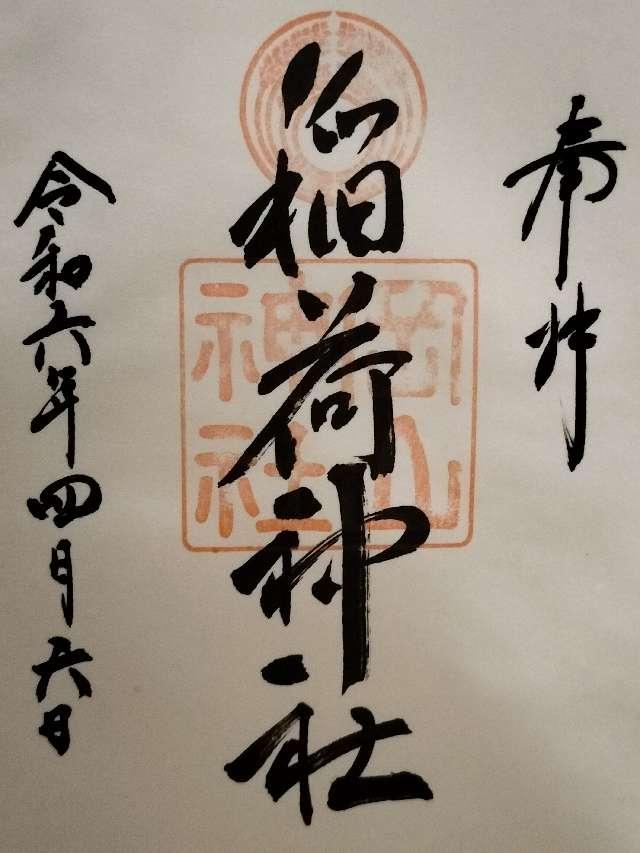 奉拝
稲荷神社
岡山
神社
令和六年四月六日